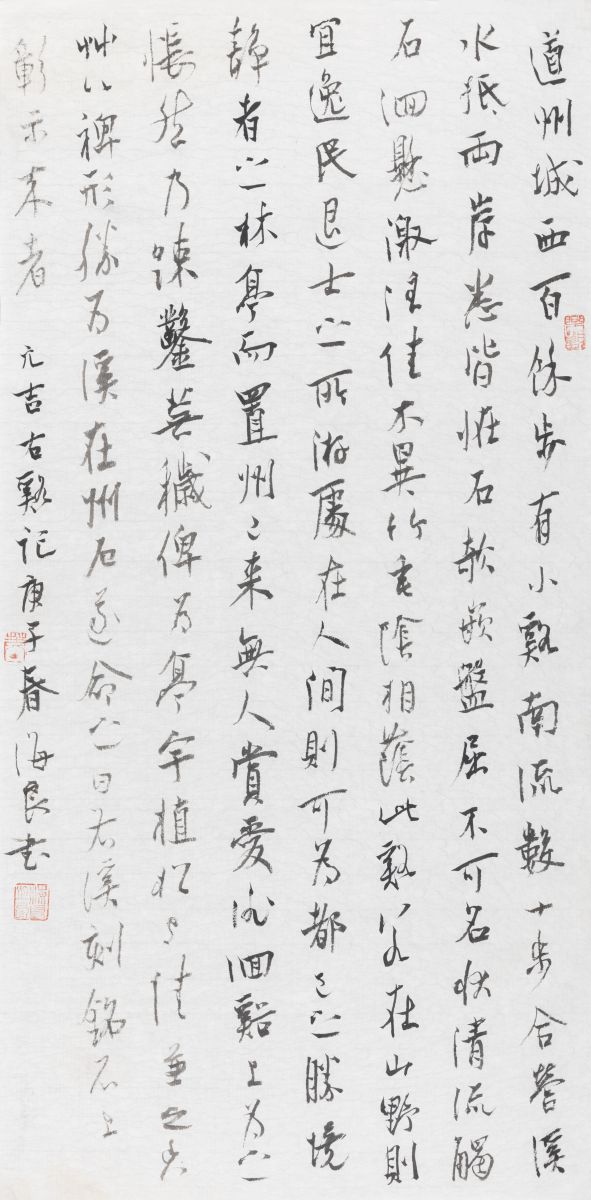 道州城西百余步有小谿南流數十步合營溪
水抵兩岸悉皆怪石欹嵌盤屈不可名狀清流觸
石洄懸激注佳木異竹垂陰相蔭此谿若在山野則
宜逸民退士之所游處在人間則可為都邑之勝境
靜者之林亭而置州以来無人賞愛徘徊谿上為之
悵然乃疎鑿蕪穢俾為亭宇植松与佳兼之香
艸以裨形勝為溪在州右遂命之曰右溪刻銘石上
彰示来者 元吉右谿記庚子春海良书